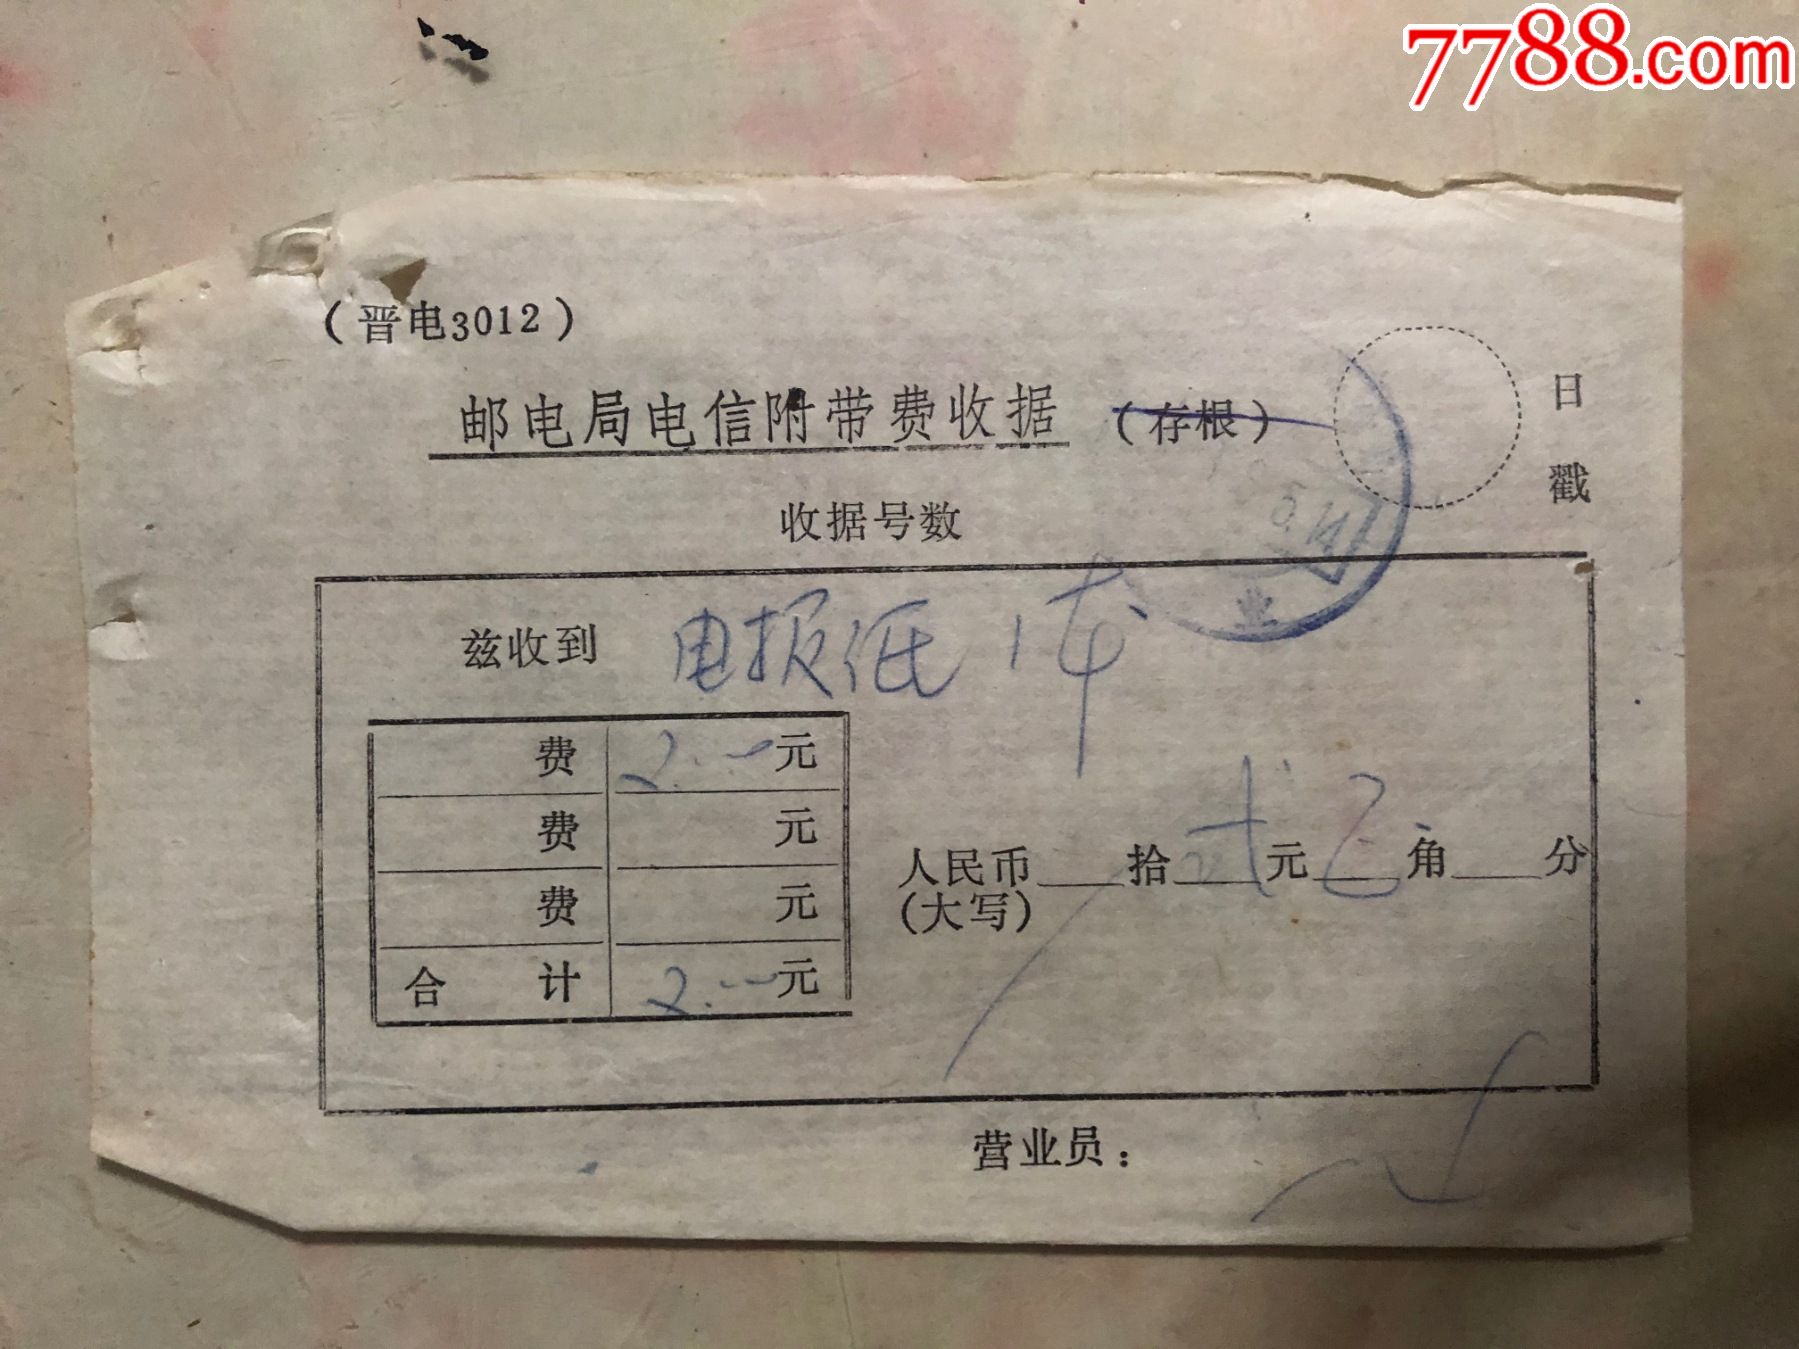 7788.com
(晋电3012)
邮电局电信附带费收据 (存根)
日戳
收据号数
业
兹收到 电报纸 1本
费 2.00元
费 元
费 元
合计 2.00元
人民币 拾 贰元 角 分
(大写)
营业员: